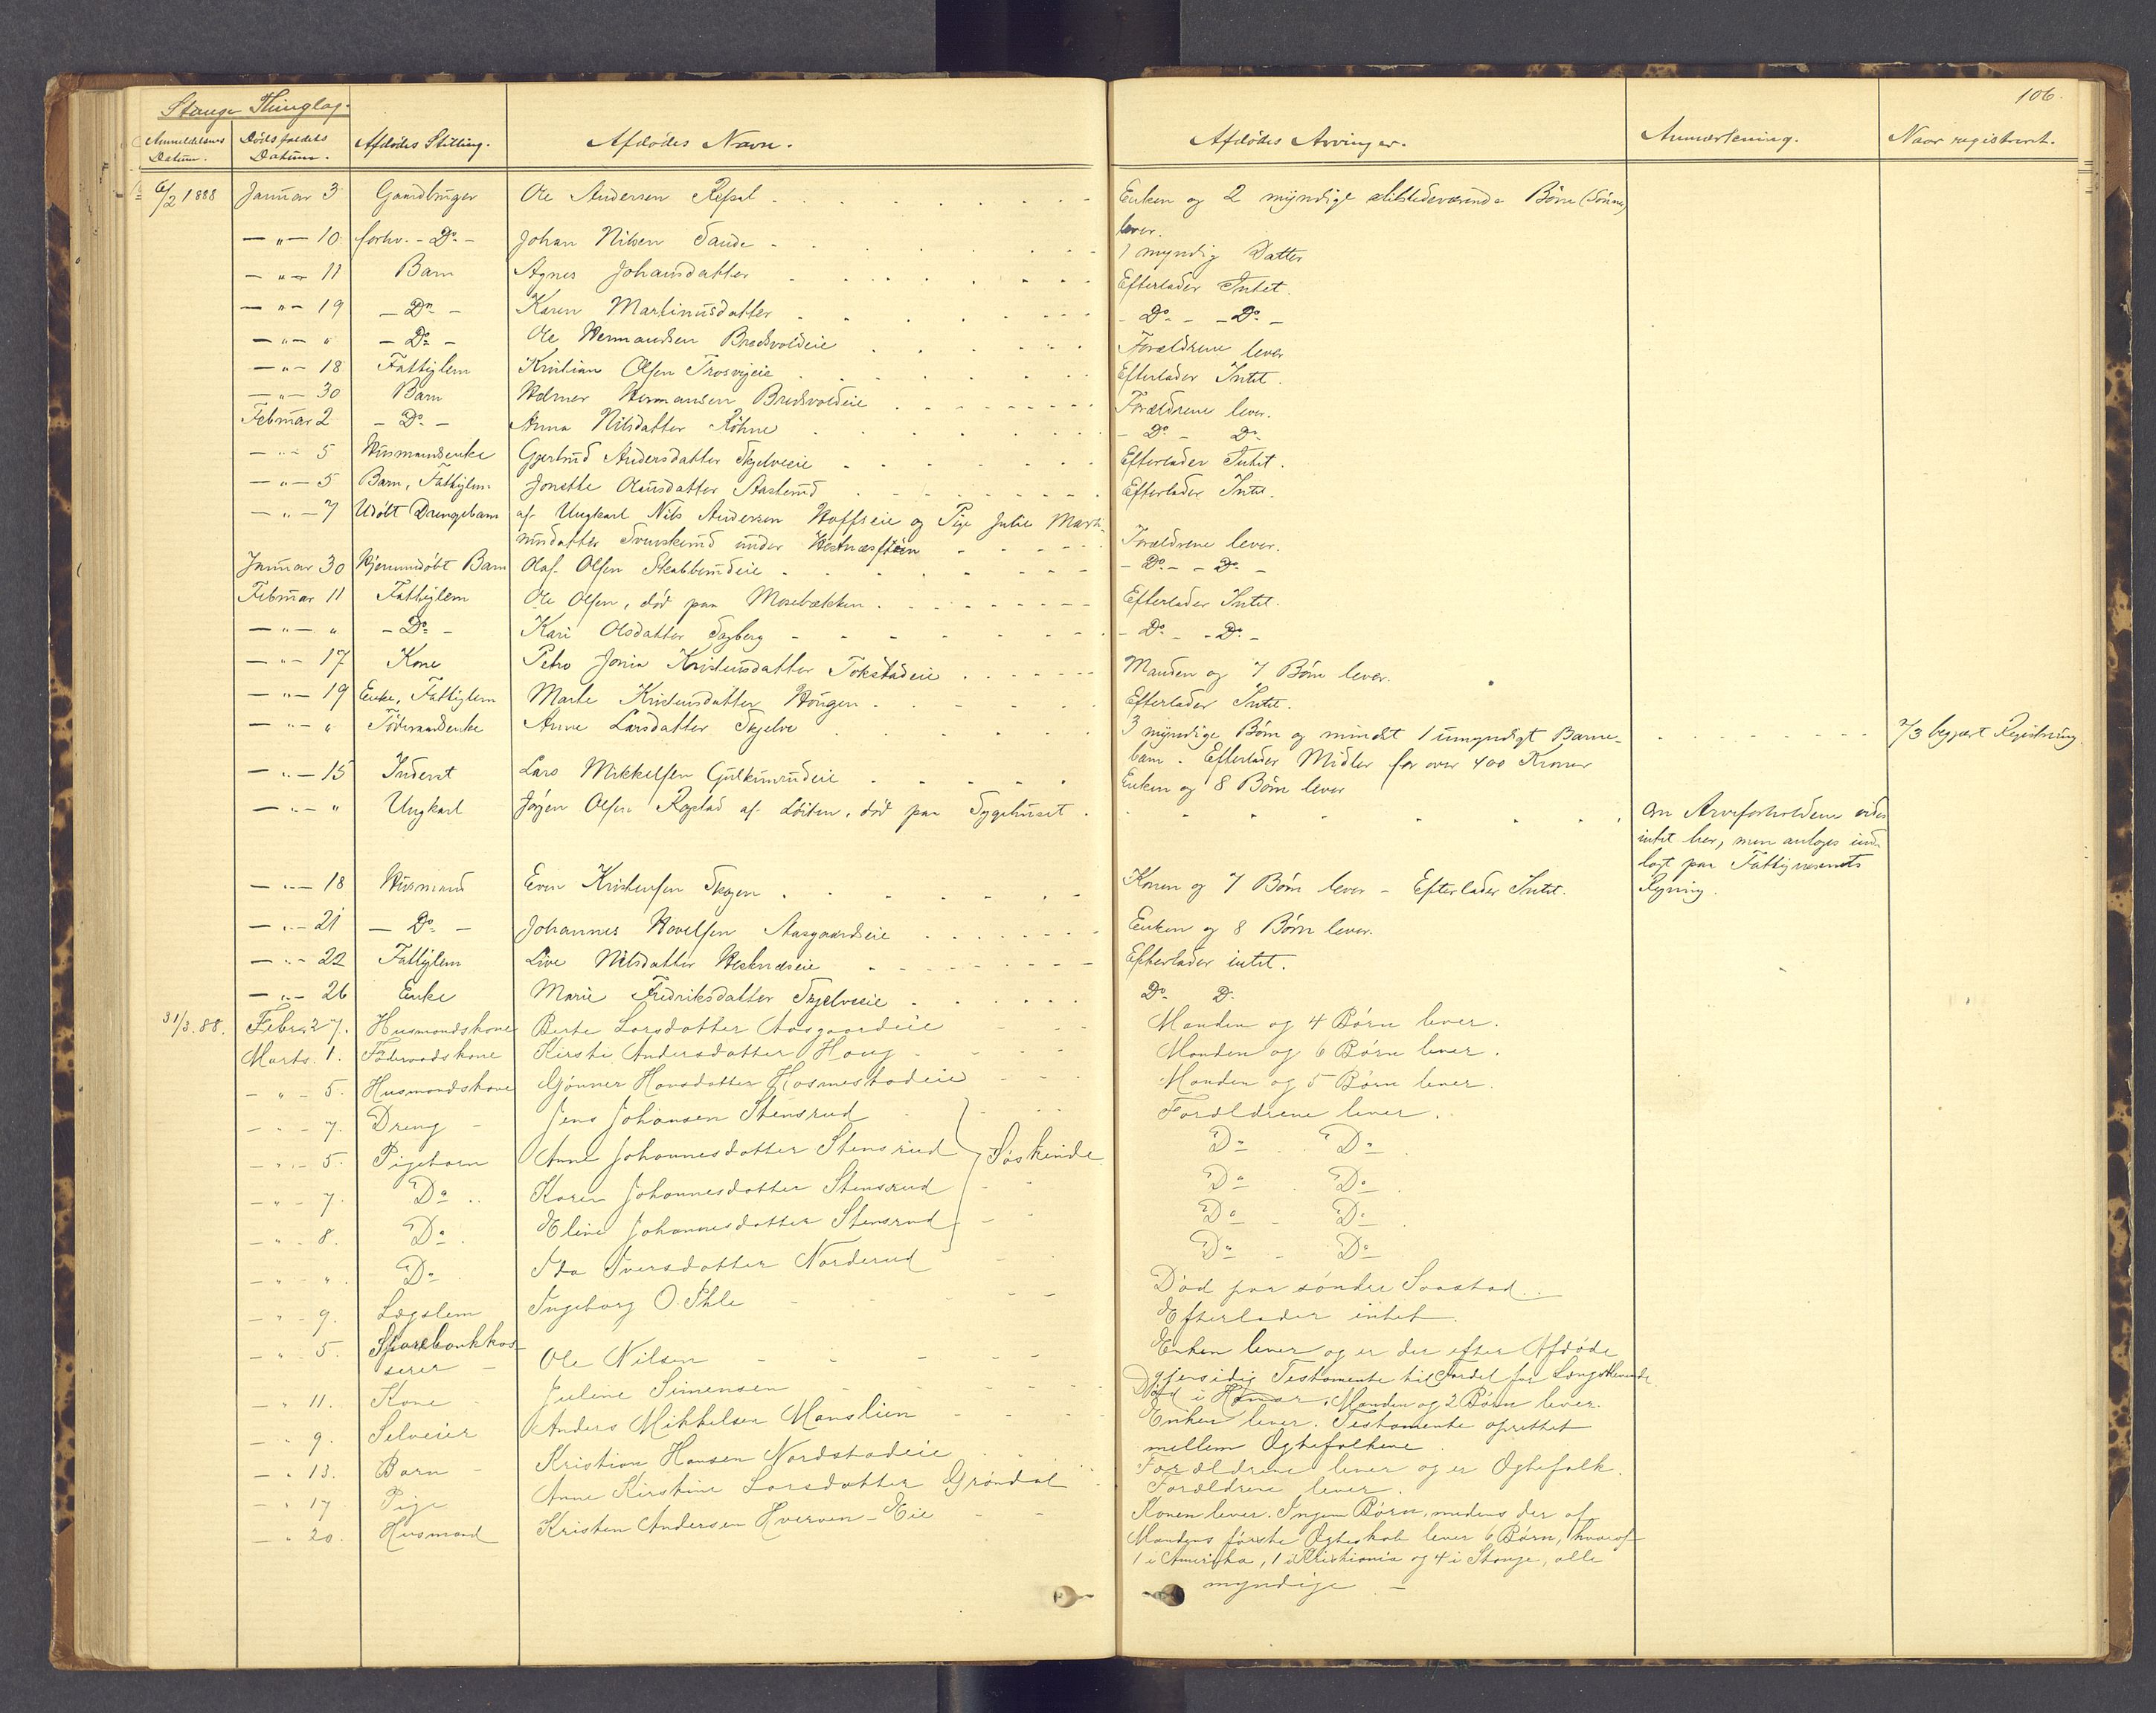 Stange Thinglag.
106.
Anmeldelsens Datum. Dødsfaldets Datum. Afdødes Stilling. Afdødes Navn. Afdødes Arvinger. Anmærkning. Naar registreret.
6/2 1888 Januar 3 Gaardbruger Ole Andersen Refsal Enken og 2 myndige tilstedeværende Børn (Sønner)
lever.
— " — 10 forhv. - Do - Johan Nilsen Sande 1 myndig Datter
— " — 11 Barn Agnes Johansdatter Efterlader Intet.
— " — 19 - Do - Karen Martinusdatter - Do - - Do -
— " — " - Do - Ole Hermandsen Bredvoldeie Forældrene lever
— " — 18 Fattiglem Kristian Olsen Frosvigeie Efterlader Intet.
— " — 30 Barn Holmer Hermansen Bredsvoldeie Forældrene lever.
Februar 2 - Do - Anna Nilsdatter Røhne - Do - Do
— " — 5 Husmandsenke Gjertrud Andersdatter Skjelveeie Efterlader Intet.
— " — 5 Barn, Fattiglem Jonette Olausdatter Efterlader Intet.
— " — 7 Udøbt Drengebarn af Ungkarl Nils Andersen Hoffseie og Pige Julie Marti-
nusdatter under Forældrene lever.
Januar 30 Hjemmedøbt Barn Olaf Olsen Skabberudeie - Do - - Do -
Februar 11 Fattiglem Ole Olsen, død paa Mosebækken. Efterlader Intet.
— " — " - Do - Kari Olsdatter Sagberg - Do - - Do -
— " — 17 Kone Petro Jonia Kristensdatter Tokstadeie Manden og 7 Børn lever.
— " — 19 Enke, Fattiglem Marte Kristensdatter Hougen Efterlader Intet.
— " — " Føderaadsenke Anne Larsdatter Skjelve 3 myndige Børn og mindst 1 umyndigt Barne- 2/3 begjært Registrering.
barn. Efterlader Midler for over 400 Kroner
— " — 15 Inderst Lars Mikkelsen Gulkinrudeie Enken og 8 Børn lever
— " — " Ungkarl Jørgen Olsen Rogstad af Løiten, død paa Sygehuset. Om Arveforholdene vides
intet her, men antages ind-
lagt paa Fattigvæsenets
— " — 18 Husmand Even Kristensen Skogen Konen og 7 Børn lever - Efterlader Intet. Regning.
— " — 21 — Do — Johannes Hovelsen Aasgaardseie Enken og 8 Børn lever.
— " — 22 Fattiglem Live Nilsdatter Hestnæseie Efterlader intet.
— " — 26 Enke Marie Fredriksdatter Skjelveeie Do D.
31/3. 88. Febr. 27. Husmandskone Berte Larsdatter Aasgaardeie Manden og 4 Børn lever.
Marts. 1. Føderaadskone Kirsti Andersdatter Houg Manden og 6 Børn lever.
- " - 5. Husmandskone Gønner Hansdatter Hosmestadeie Manden og 5 Børn lever.
- " - 7. Dreng - Jens Johansen Stensrud Forældrene lever.
- " - 5. Pigebarn Anne Johannesdatter Stensrud Søskende Do Do
- " - 7. Do Karen Johannesdatter Stensrud Do Do
- " - 8. Do Eline Johannesdatter Stensrud Do Do
- " - " . Do Ida Iversdatter Norderud Do - Do
- " - 9. Lægslem Ingeborg O. Ihle Død paa søndre Saastad.
Efterlader intet.
- " - 5. Sparebankkas-
serer - Ole Nilsen Enken lever og er der efter Afdøde
gjensidig Testamente til Fordel for Længstlevende
- " 11. Kone - Juline Simensen Død i Hamar. Manden og 2 Børn lever.
- " 9. Selveier Anders Mikkelsen Manslien Enken lever. Testamente oprettet
mellem Egtefolkene
- " 13. Barn - Kristian Hansen Nordstadeie Forældrene lever og er Egtefolk.
- " 17 Pige Anne Kirstine Larsdatter Grøndal Forældrene lever.
- " 20. Husmand Kristen Andersen Hverven-Eie Konen lever. Ingen Børn, medens der af
Mandens første Egteskab lever 6 Børn, hvoraf
1 i Amerika, 1 i Kristiania og 4 i Stange, alle
myndige. -